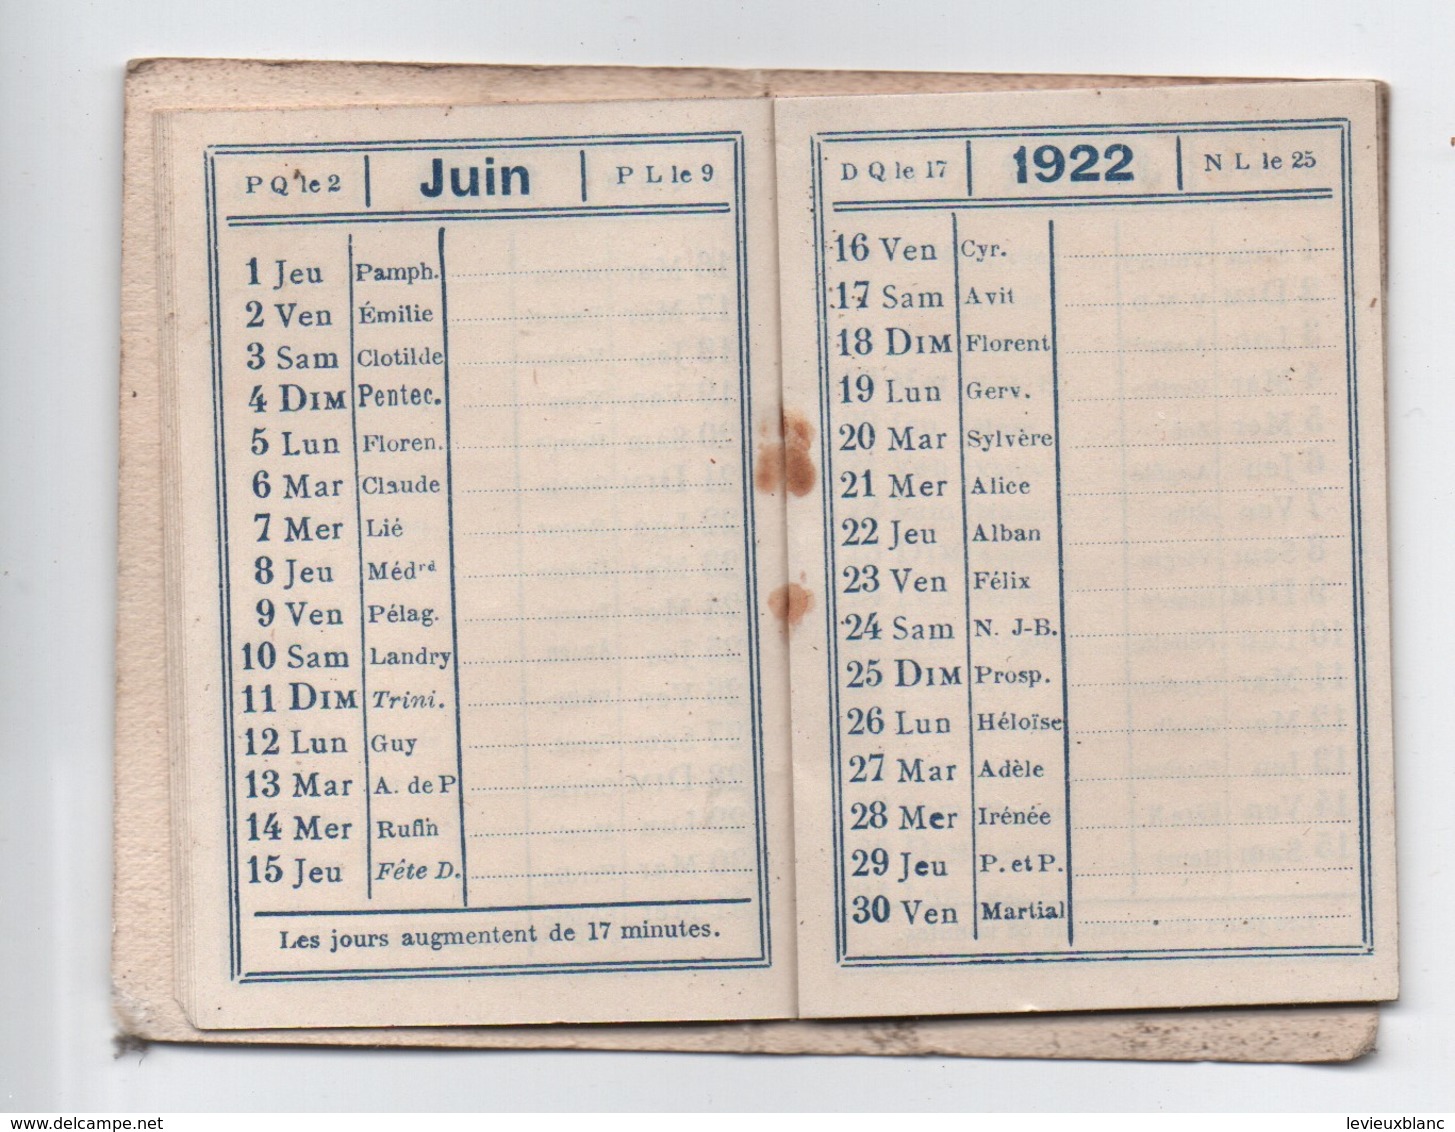 P Q le 2 Juin P L le 9
1 Jeu Pamph.
2 Ven Émilie
3 Sam Clotilde
4 DIM Pentec.
5 Lun Floren.
6 Mar Claude
7 Mer Lié
8 Jeu Médrd
9 Ven Pélag.
10 Sam Landry
11 DIM Trini.
12 Lun Guy
13 Mar A. de P
14 Mer Rufin
15 Jeu Fête D.
Les jours augmentent de 17 minutes.
D Q le 17 1922 N L le 25
16 Ven Cyr.
17 Sam Avit
18 DIM Florent
19 Lun Gerv.
20 Mar Sylvère
21 Mer Alice
22 Jeu Alban
23 Ven Félix
24 Sam N. J-B.
25 DIM Prosp.
26 Lun Héloïse
27 Mar Adèle
28 Mer Irénée
29 Jeu P. et P.
30 Ven Martial
www.delcampe.net
levieuxblanc